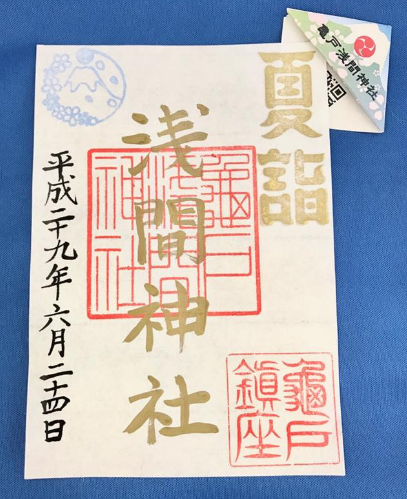 夏詣
浅間神社
平成二十九年六月二十四日
龜戸
浅間
神社
龜戸
鎮座
亀戸浅間神社